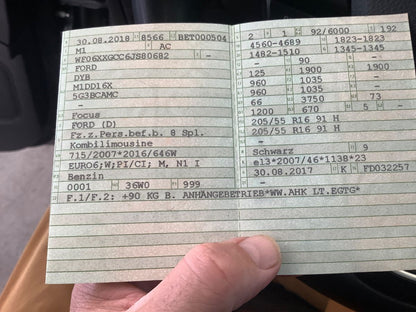 30.08.2018 8566 BET000504
M1 AC
WF06XXGCC6JS80682 -
FORD
DYB
M1DD16X
5G3BCAMC
-
Focus
FORD (D)
Fz.z.Pers.bef.b. 8 Spl.
Kombilimousine
715/2007*2016/646W
EURO6;W;PI/CI; M, N1 I
Benzin
0001 36W0 999
2 1 92/6000 192
4560-4689 1823-1823
1482-1510 1345-1345
- 90 -
125 1900 1900
960 1035 -
960 1035 -
66 3750 73
1200 670 5 -
205/55 R16 91 H
205/55 R16 91 H
-
Schwarz 9
e13*2007/46*1138*23
30.08.2017 K FD032257
F.1/F.2: +90 KG B. ANHÄNGEBETRIEB*WW.AHK LT.EGTG*